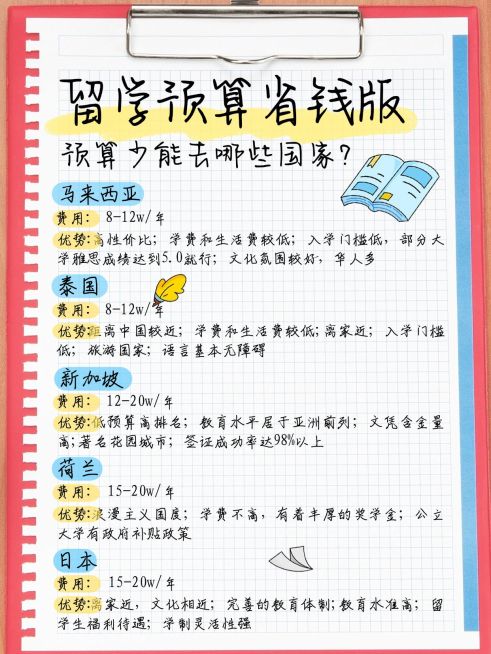 留学预算省钱版
预算少能去哪些国家？
马来西亚
费用： 8-12w/年
优势:高性价比； 学费和生活费较低； 入学门槛低， 部分大
学雅思成绩达到5.0就行； 文化氛围较好， 华人多
泰国
费用： 8-12w/年
优势:距离中国较近； 学费和生活费较低；离家近； 入学门槛
低； 旅游国家； 语言基本无障碍
新加坡
费用： 12-20w/年
优势:低预算高排名； 教育水平居于亚洲前列； 文凭含金量
高；著名花园城市； 签证成功率达98%以上
荷兰
费用： 15-20w/年
优势:浪漫主义国度； 学费不高，有着丰厚的奖学金； 公立
大学有政府补贴政策
日本
费用： 15-20w/年
优势:离家近，文化相近； 完善的教育体制；教育水准高； 留
学生福利待遇； 学制灵活性强